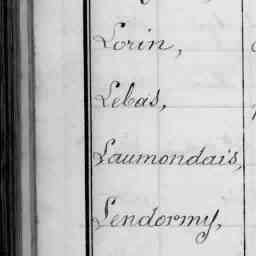 Lorin,
Lebas,
Laumondais,
Lendormy,